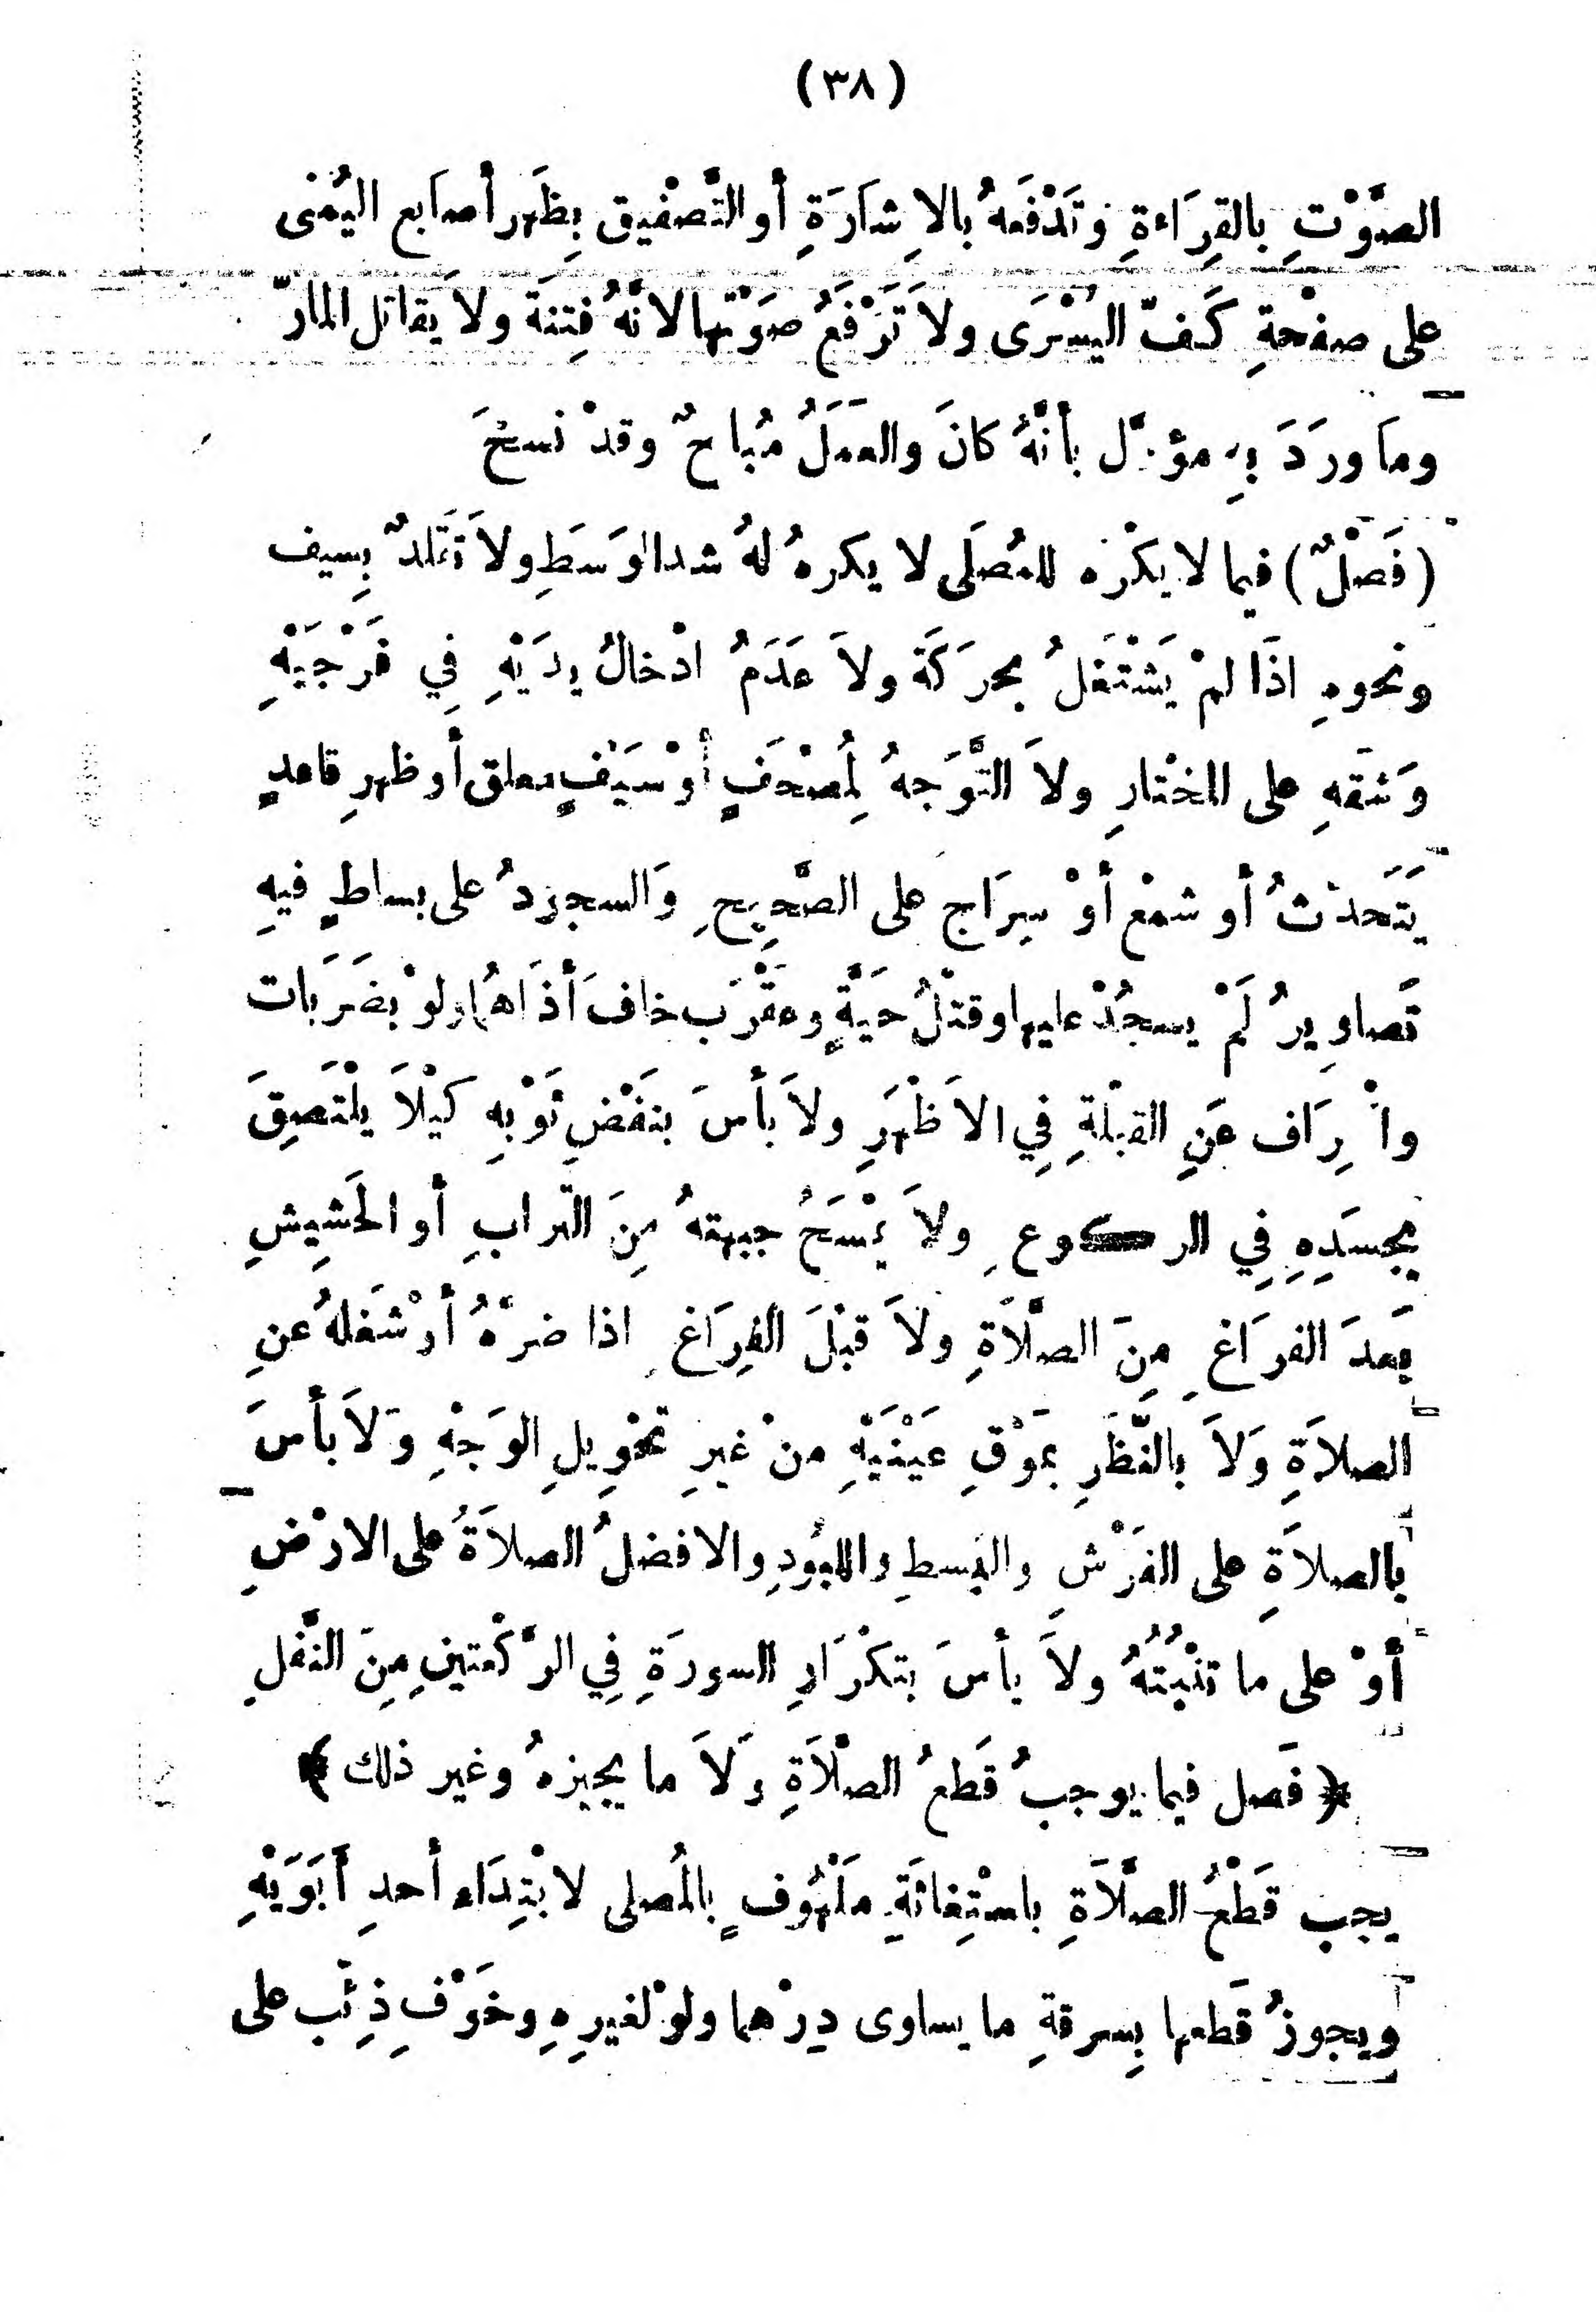 (٣٨)
الصَّوْتِ بِالقِرَاءةِ وَتَدْفَعهُ بالاِشَارَةِ أو التَّصْفيق بِظَهر أصابع اليُمْنى
على صفْحةِ كَفّ اليُسْرَى ولاَ تَرْفَعُ صَوْتَها لانَّهُ فِتنَة ولا يَقاتل المارّ
ومَا ورَدَ بِهِ مؤوّل بأنَّهُ كانَ والعمَلُ مُباحٌ وقدْ نسخَ
(فَصْلٌ) فيما لا يكْرَه للمُصَلى لا يكرهُ لهُ شد الوَسَطِ ولاَ تَقَلدٌ بِسيف
ونحوهِ اذَا لمْ يَشْتَغلُ بحرَكَة ولاَ عَدَمُ ادْخالُ يدَيْهِ فِي فَرْجَيْهِ
وَشقَهِ على المختارِ ولاَ التَّوَجهُ لِمُصْحَفٍ أوْ سَيْفٍ معلق أو ظهرِ قاعدٍ
يَتَحدثُ أو شمْع أوْ سِرَاج على الصَّحِيحِ وَالسجودُ على بساطٍ فيهِ
تَصاوِيرُ لَمْ يسجُدْ عليها وقتْلُ حَيَّةٍ وعقْرَب خافَ أذَاهُما ولوْ بضَرَبات
وا رَاف عَنِ القبْلةِ فِي الاَظْهَرِ ولاَ بأسَ بنَفْضِ ثَوْبهِ كيْلاَ يلْتَصِقَ
بجسَدِهِ فِي الركوعِ ولاَ يمْسَحُ جبهتهُ مِنَ التّرابِ أو الحَشِيشِ
بَعدَ الفرَاغِ مِنَ الصَّلاَةِ ولاَ قبْلَ الفِرَاغِ اذا ضرَّهُ أوْ شَغلهُ عنِ
الصلاَةِ وَلاَ بالنَّظَرِ بمَوْقِ عَيْنَيْهِ منْ غيرِ تحْوِيلِ الوَجْهِ وَلاَ بأسَ
بالصلاَةِ على الفَرْشِ والبسطِ واللبُودِ والافضلُ الصلاَةُ على الارْضِ
أوْ على ما تنْبُتُهُ ولاَ بأسَ بتكْرَارِ السورَةِ فِي الرَّكْعتينِ مِنَ النَّفلِ
﴿ فَصل فيما يوجبُ قَطعُ الصلاَةِ وَلاَ ما يجيزهُ وغير ذلك ﴾
يجب قَطْعُ الصَّلاَةِ باسْتِغاثَةِ مَلْهُوفٍ بالمُصلى لا بْتِدَاء أحدِ أَبَوَيْهِ
ويجوزُ قَطعها بِسرقةِ ما يساوى دِرْهما ولوْ لغيرِهِ وخَوْفِ ذِئْب على